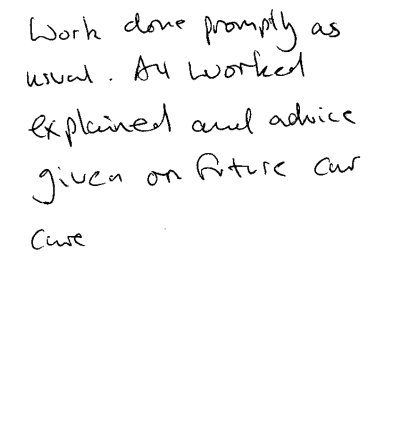 Work done promptly as
usual. All worked
explained and advice
given on future car
care